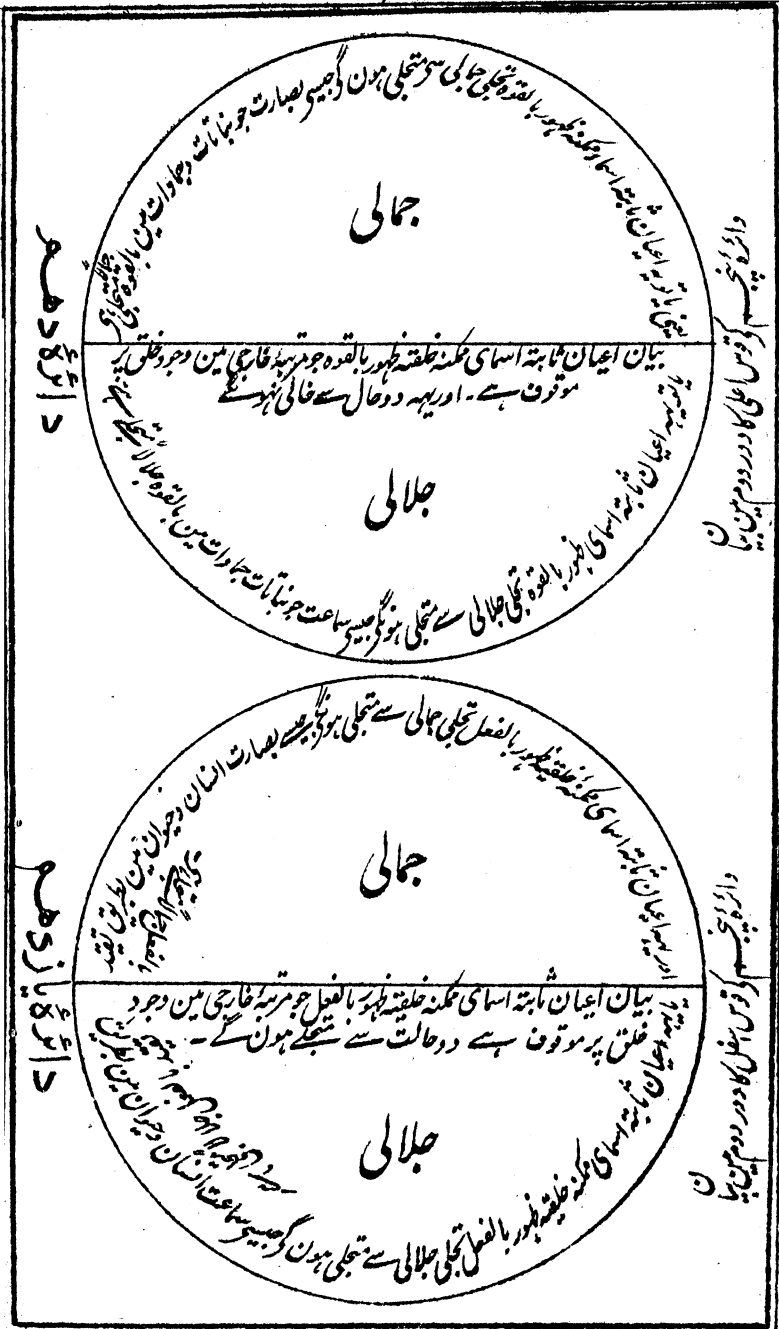 دائرہ پنجم کی قوس اعلی کا دور دوم مین بیان
دائرۂ دھم
یعنی یا تو یہ اعیان ثابتہ اسماء ممکنہ ظہور بالقوہ تجلی جمالی سی متجلی ہون گی جیسی بصارت جو نباتات و جمادات مین بالقوہ متجلی ہی
جمالی
بیان اعیان ثابتہ اسمای ممکنہ خلقتہ ظہور بالقوہ جو مرتبۂ خارجی مین وجود خلق پر
موقوف ہے ۔ اور یہہ دو حال سے خالی نہونگے
جلالی
یا تو یہہ اعیان ثابتہ اسمای ظہور بالقوہ تجلی جلالی سے متجلی ہونگی جیسی سماعت جو نباتات جمادات مین بالقوہ جلالاً متجلی
دائرہ پنجم کی قوس اسفل کا دور دوم مین بیان
دائرۂ یازدھم
اور یہہ اعیان ثابتہ اسمای ممکنہ خلقیہ ظہور بالفعل تجلی جمالی سے متجلی ہونگی جیسے بصارت انسان و حیوان مین بطریق تقید
جمالی
بیان اعیان ثابتہ اسمای ممکنہ خلیقتہ ظہور بالفعل جو مرتبۂ خارجی مین وجود
خلق پر موقوف ہے دو حالت سے متجلے ہون گے ۔
جلالی
یا یہہ اعیان ثابتہ اسمای ممکنہ خلیقتہ ظہور بالفعل تجلی جلالی سے متجلی ہون گی جیسی سماعت انسان و حیوان مین بطریق